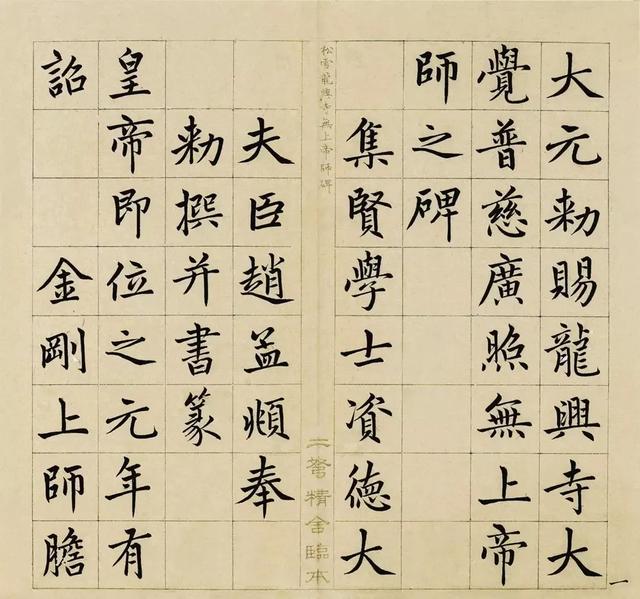 大元勅賜龍興寺大
覺普慈廣照無上帝
師之碑
集賢學士資德大
松雪龍興寺無上帝師碑
二弩精舍臨本
夫臣趙孟頫奉
勅撰并書篆
皇帝即位之元年有
詔金剛上師膽
一